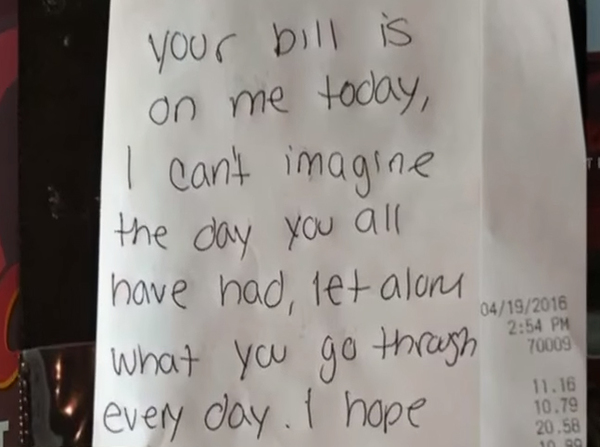 your bill is
on me today,
I can't imagine
the day you all
have had, let alone
what you go through
every day. I hope
04/19/2016
2:54 PM
70009
11.16
10.79
20.58